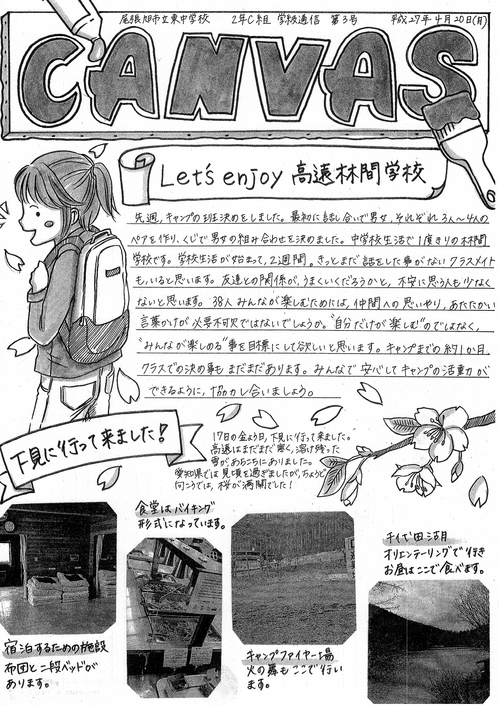 尾張旭市立東中学校 2年C組 学級通信 第3号 平成27年4月20日(月)
CANVAS
Let's enjoy 高遠林間学校
先週、キャンプの班決めをしました。最初に話し合いで男女、それぞれ3人〜4人の
ペアを作り、くじで男女の組み合わせを決めました。中学校生活で1度きりの林間
学校です。学校生活が始まって、2週間。きっとまだ話をした事がないクラスメイト
も、いると思います。友達との関係が、うまくいくだろうかと、不安に思う人も少なく
ないと思います。38人みんなが楽しむためには、仲間への思いやり、あたたかい
言葉かけが必要不可欠ではないでしょうか。"自分だけが楽しむ"のではなく、
"みんなが楽しめる"事を目標にして欲しいと思います。キャンプまでの約1か月、
クラスでの決め事もまだまだあります。みんなで安心してキャンプの活動が
できるように、協力し合いましょう。
下見に行って来ました!
17日の金よう日、下見に行って来ました。
高遠はまだまだ寒く、溶け残った
雪があちこちにありました。
愛知県では見頃を過ぎましたが、ちょうど
向こうでは、桜が満開でした!
宿泊するための施設
布団と二段ベッドが
あります。
食堂はバイキング
形式になっています。
キャンプファイヤー場
火の舞もここで行い
ます。
千代田湖
オリエンテーリングで行き
お昼はここで食べます。